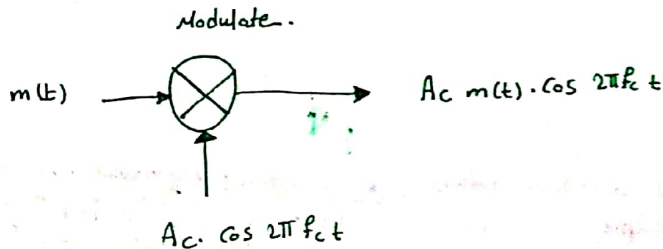 Modulate.
m(t)
Ac m(t). Cos 2πfc t
Ac. Cos 2π fc t